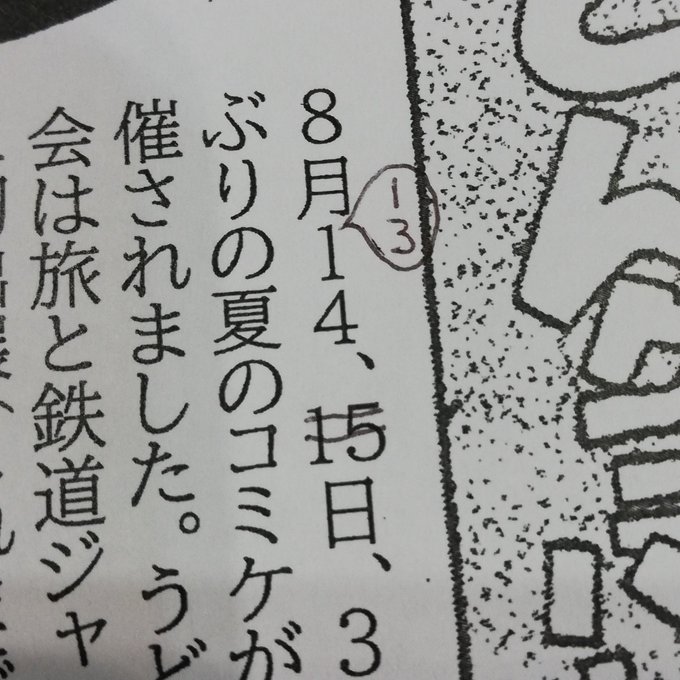 13
8月14、15日、3
ぶりの夏のコミケが
催されました。うど
会は旅と鉄道ジャ